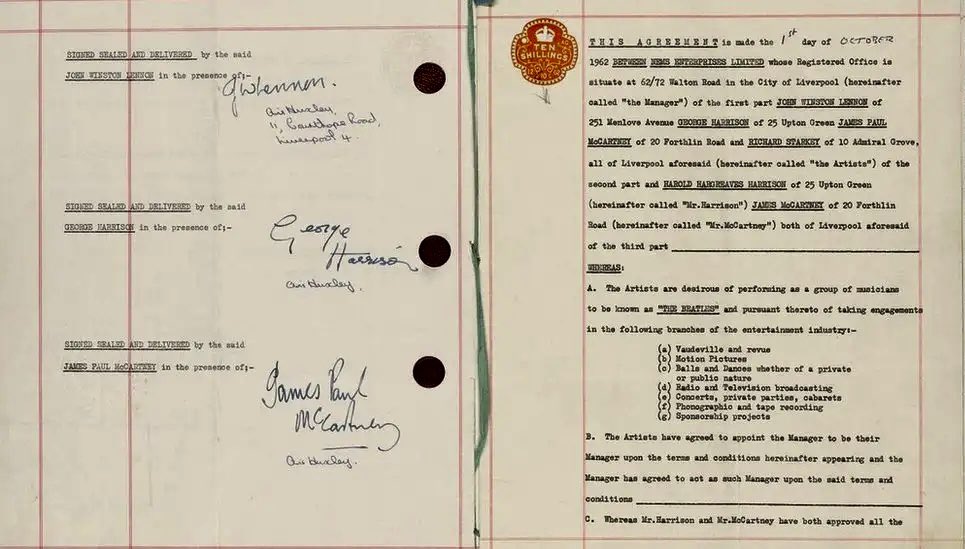 SIGNED SEALED AND DELIVERED by the said
JOHN WINSTON LENNON in the presence of:-
JWLennon.
Huxley,
11,
Liverpool 4.
SIGNED SEALED AND DELIVERED by the said
GEORGE HARRISON in the presence of;-
George
Harrison
Huxley.
SIGNED SEALED AND DELIVERED by the said
JAMES PAUL McCARTNEY in the presence of;-
James Paul
McCartney
Huxley.
TEN
SHILLINGS
THIS AGREEMENT is made the 1st day of OCTOBER
1962 BETWEEN NEMS ENTERPRISES LIMITED whose Registered Office is
situate at 62/72 Walton Road in the City of Liverpool (hereinafter
called "the Manager") of the first part JOHN WINSTON LENNON of
251 Menlove Avenue GEORGE HARRISON of 25 Upton Green JAMES PAUL
McCARTNEY of 20 Forthlin Road and RICHARD STARKEY of 10 Admiral Grove,
all of Liverpool aforesaid (hereinafter called "the Artists") of the
second part and HAROLD HARGREAVES HARRISON of 25 Upton Green
(hereinafter called "Mr.Harrison") JAMES McCARTNEY of 20 Forthlin
Road (hereinafter called "Mr.McCartney") both of Liverpool aforesaid
of the third part
WHEREAS:
A. The Artists are desirous of performing as a group of musicians
to be known as "THE BEATLES" and pursuant thereto of taking engagements
in the following branches of the entertainment industry:-
(a) Vaudeville and revue
(b) Motion Pictures
(c) Balls and Dances whether of a private
or public nature
(d) Radio and Television broadcasting
(e) Concerts, private parties, cabarets
(f) Phonographic and tape recording
(g) Sponsorship projects
B. The Artists have agreed to appoint the Manager to be their
Manager upon the terms and conditions hereinafter appearing and the
Manager has agreed to act as such Manager upon the said terms and
conditions
C. Whereas Mr.Harrison and Mr.McCartney have both approved all the